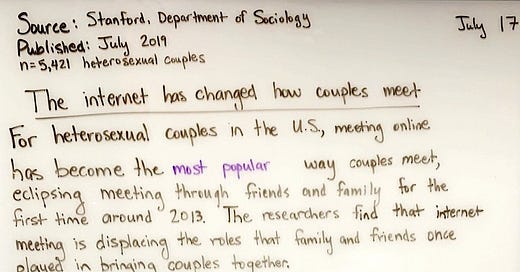 Source: Stanford, Department of Sociology
July 17
Published: July 2019
n=5,421 heterosexual couples
The internet has changed how couples meet
For heterosexual couples in the U.S., meeting online
has become the most popular way couples meet,
eclipsing meeting through friends and family for the
first time around 2013. The researchers find that internet
meeting is displacing the roles that family and friends once
played in bringing couples together.